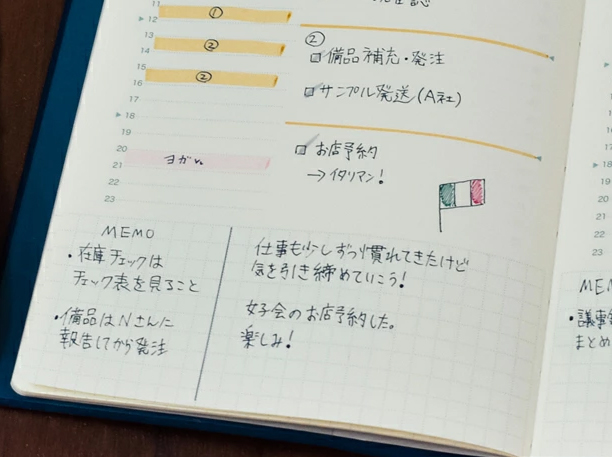 11
12
①
13
14
②
15
②
16
17
18
19
20
21
ヨガ
22
23
②
備品補充・発注
サンプル発送(A社)
お店予約
→イタリアン!
MEMO
・在庫チェックは
チェック表を見ること
・備品はNさんに
報告してから発注
仕事も少しずつ慣れてきたけど
気を引き締めていこう!
女子会のお店予約した。
楽しみ!
18
19
20
21
22
23
・議事
まとめ